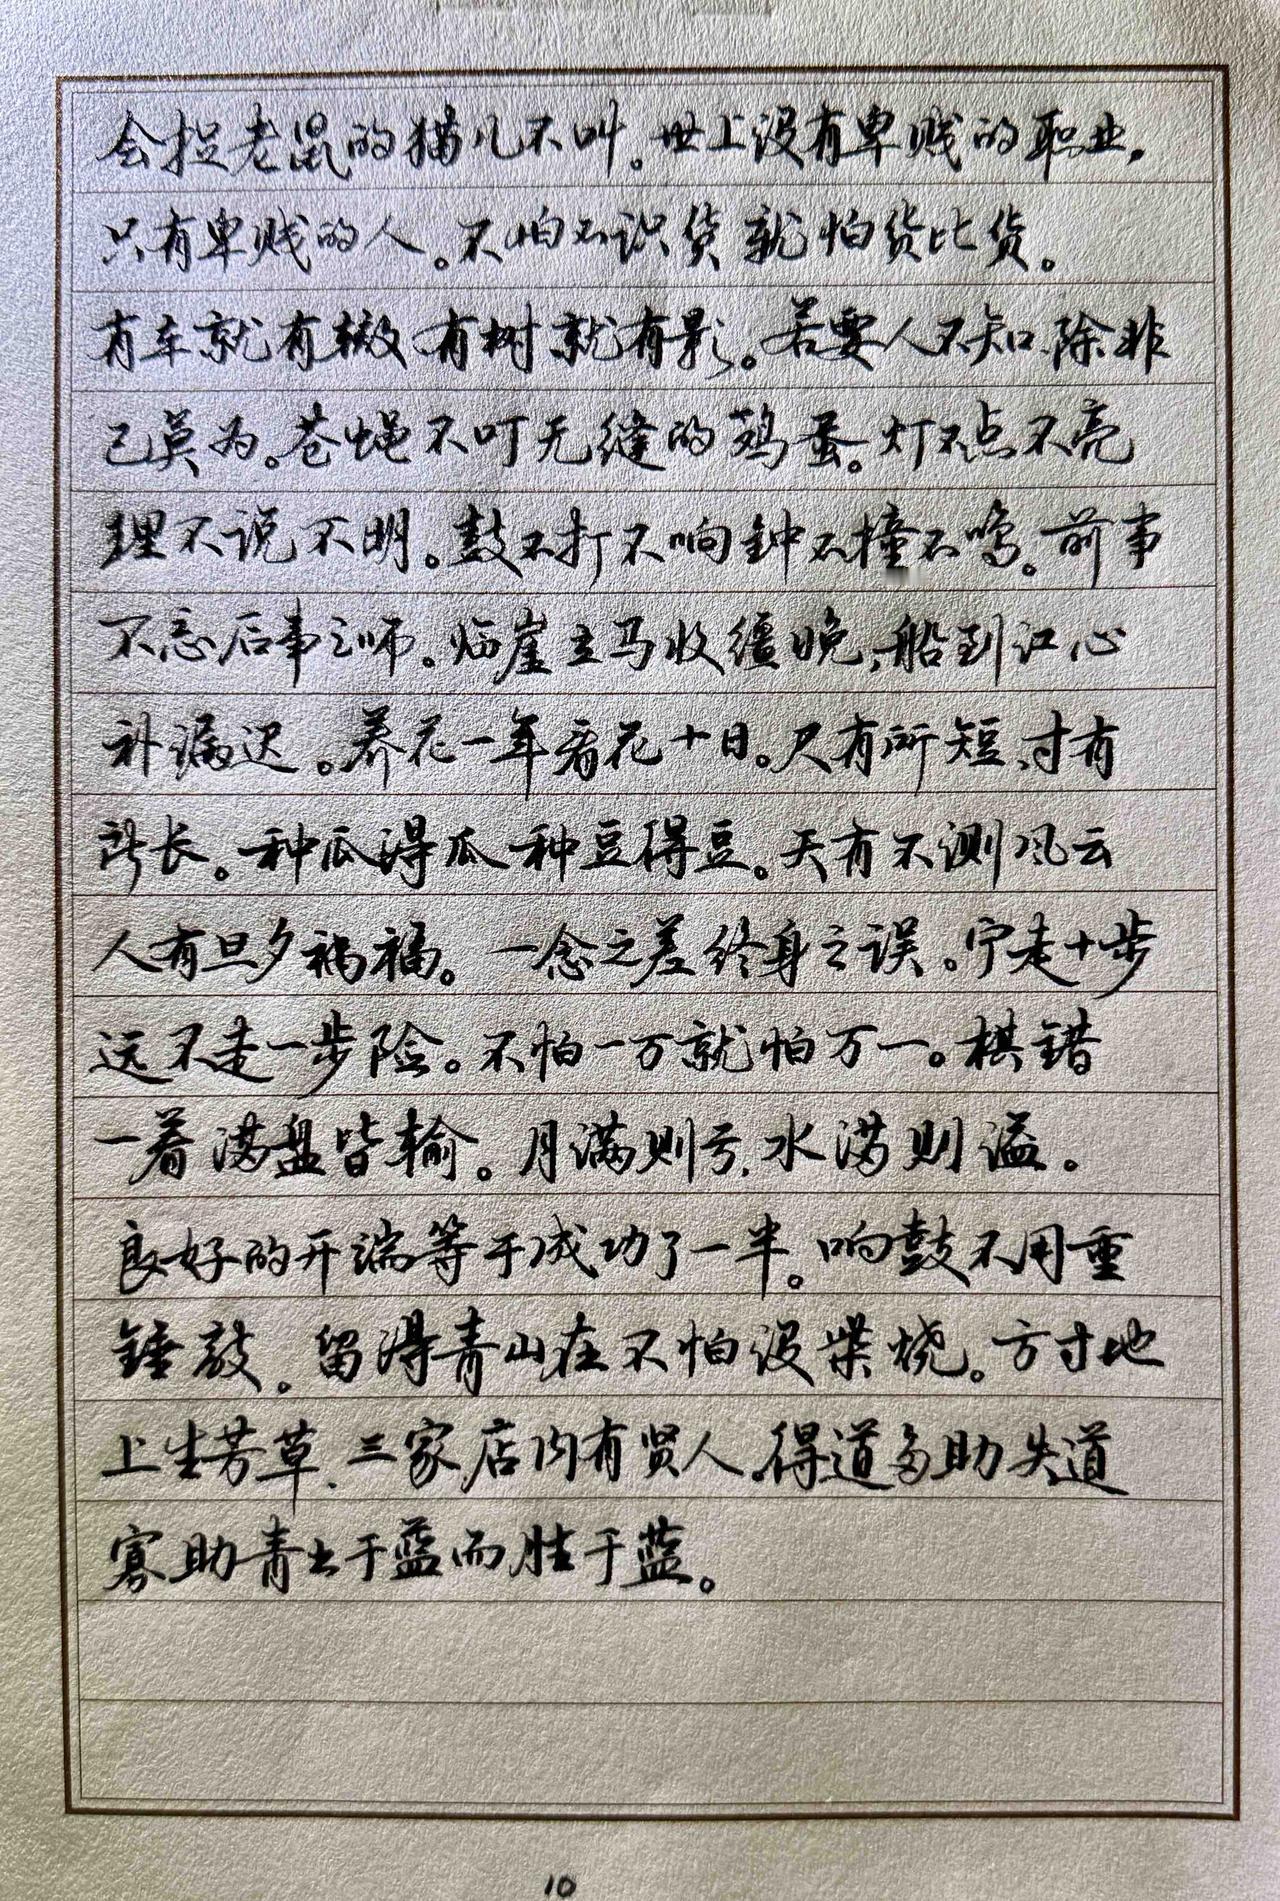 会捉老鼠的猫儿不叫。世上没有卑贱的职业，
只有卑贱的人。不怕不识货就怕货比货。
有车就有辙有树就有影。若要人不知、除非
己莫为。苍蝇不叮无缝的鸡蛋。灯不点不亮
理不说不明。鼓不打不响钟不撞不鸣。前事
不忘后事之师。临崖立马收缰晚，船到江心
补漏迟。养花一年看花十日。尺有所短、寸有
所长。种瓜得瓜种豆得豆。天有不测风云
人有旦夕祸福。一念之差终身之误。宁走十步
远不走一步险。不怕一万就怕万一。棋错
一着满盘皆输。月满则亏、水满则溢。
良好的开端等于成功了一半。响鼓不用重
锤敲。留得青山在不怕没柴烧。方寸地
上生芳草、三家店内有贤人。得道多助失道
寡助青出于蓝而胜于蓝。
10